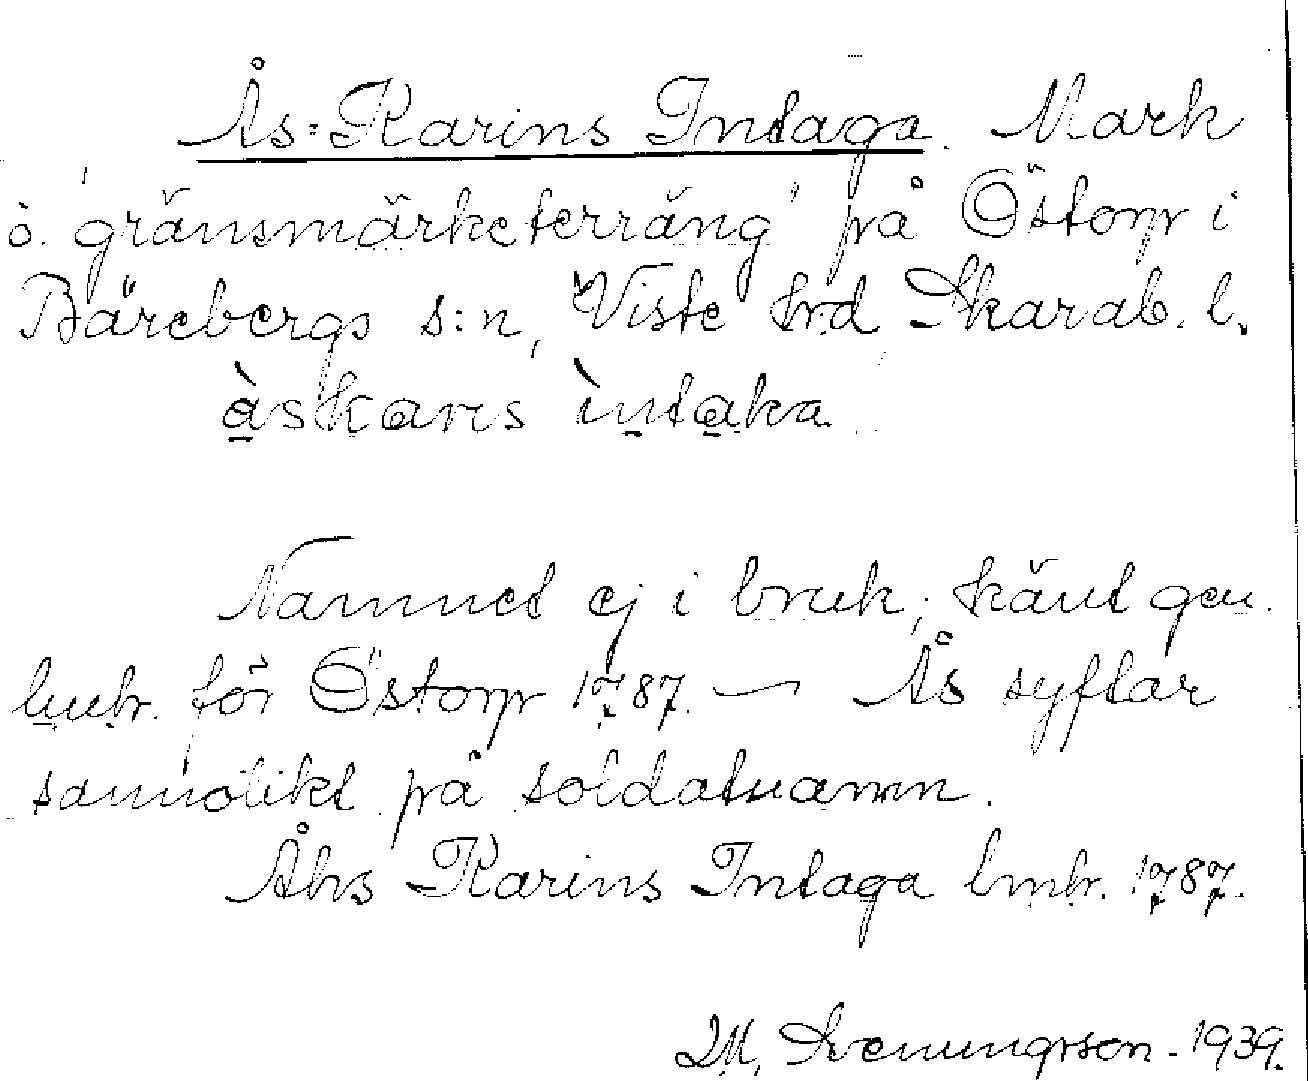 Ås-Karins Intaga. Mark
o. 'gränsmärketerräng' på Östorp i
Bärebergs s:n, Viste hrd Skarab. l.
àskaris ìntaka

Namnet ej i bruk, känt gen.
lmbr. för Östorp 1787. — Ås syftar
sannolikt på soldatnamn.
Åhs Karins Intaga lmbr. 1787.
M. Svenungsson - 1939.